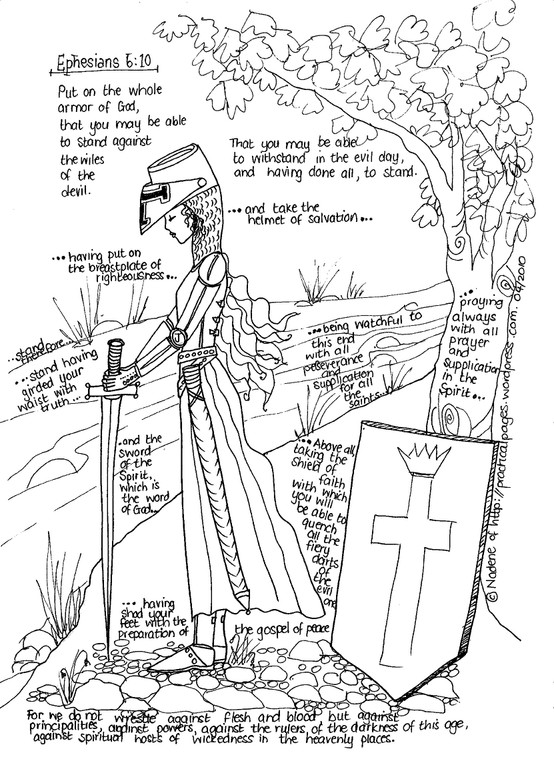 Ephesians 6:10
Put on the whole
armor of God,
that you may be able
to stand against
the wiles
of the
devil.
That you may be able
to withstand in the evil day,
and having done all, to stand.
... and take the
helmet of salvation ...
... having put on
the breastplate of
righteousness ...
...stand
therefore...
...stand having
girded your
waist with
truth ...
...being watchful to
this end
with all
perseverance
and
supplication
for all
the
saints...
... praying
always
with all
prayer
and
supplication
in the
Spirit...
...and the
sword
of the
Spirit,
which is
the word
of God...
... Above all,
taking the
shield of
faith
with which
you will
be able to
quench
all the
fiery
darts
of
the
evil
one
... having
shod your
feet with the
preparation of
the gospel of peace
For we do not wrestle against flesh and blood but against
principalities, against powers, against the rulers of the darkness of this age,
against spiritual hosts of wickedness in the heavenly places.
© Nadene of http://practicalpages.wordpress.com. 04/2010